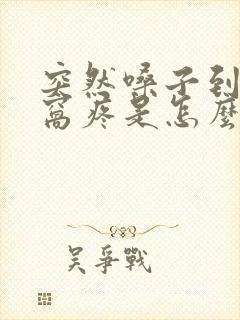 突然嗓子到
窩疼是怎麼
吴爭戰